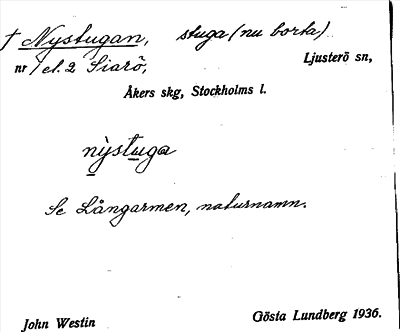 † Nystugan, stuga (nu borta)
nr 1 el. 2 Siarö, Ljusterö sn,
Åkers skg, Stockholms l.
nỳstuga
Se Långarmen, naturnamn.
John Westin Gösta Lundberg 1936.